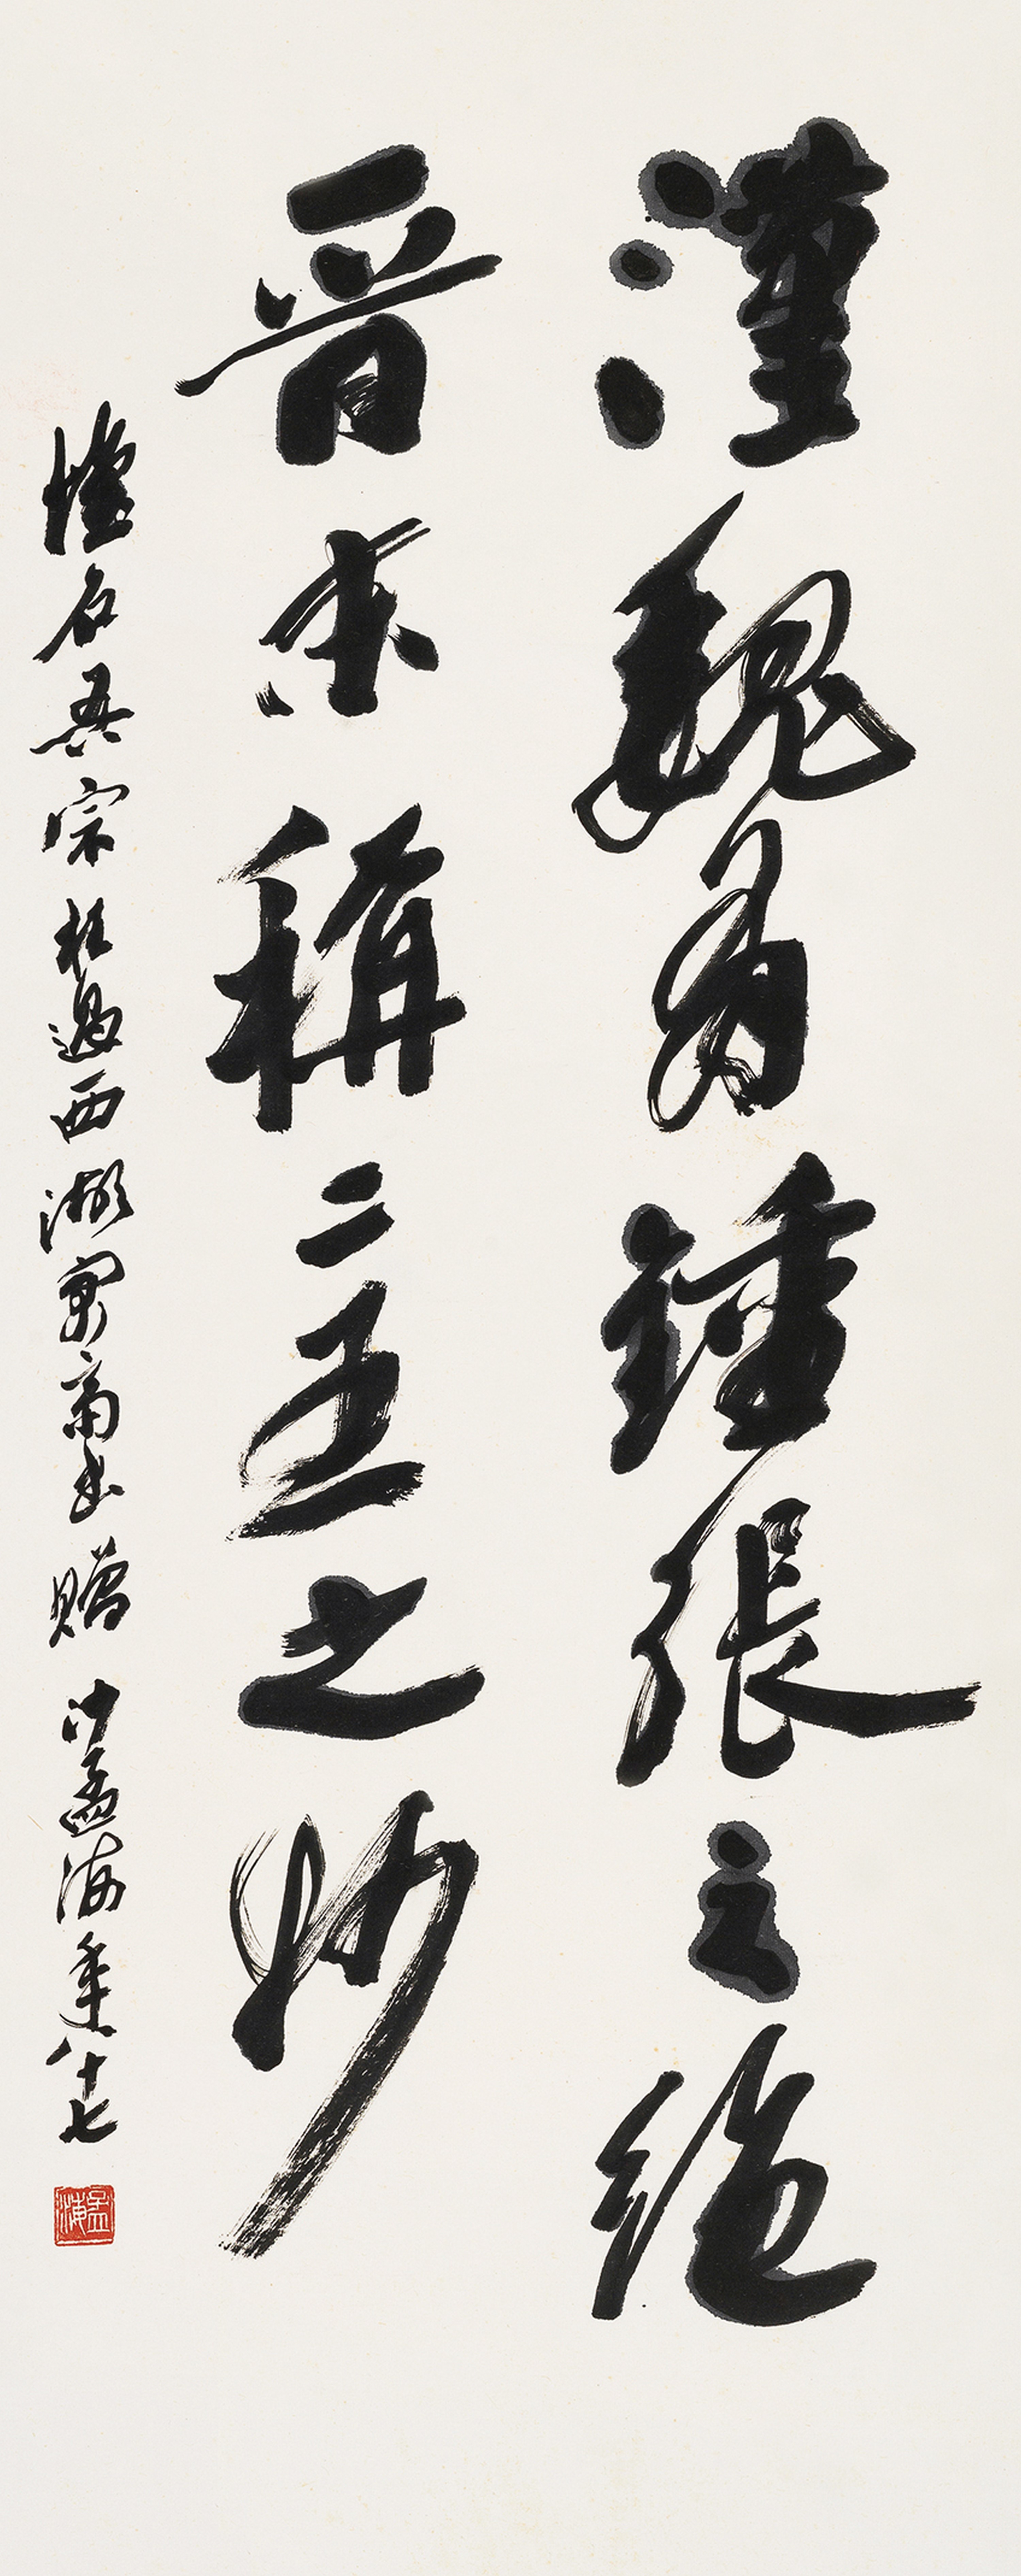 漢魏有鍾張之絕
晉末稱二王之妙
吾宗枉過西湖寓齋書贈 沙孟海年八十七
孟海